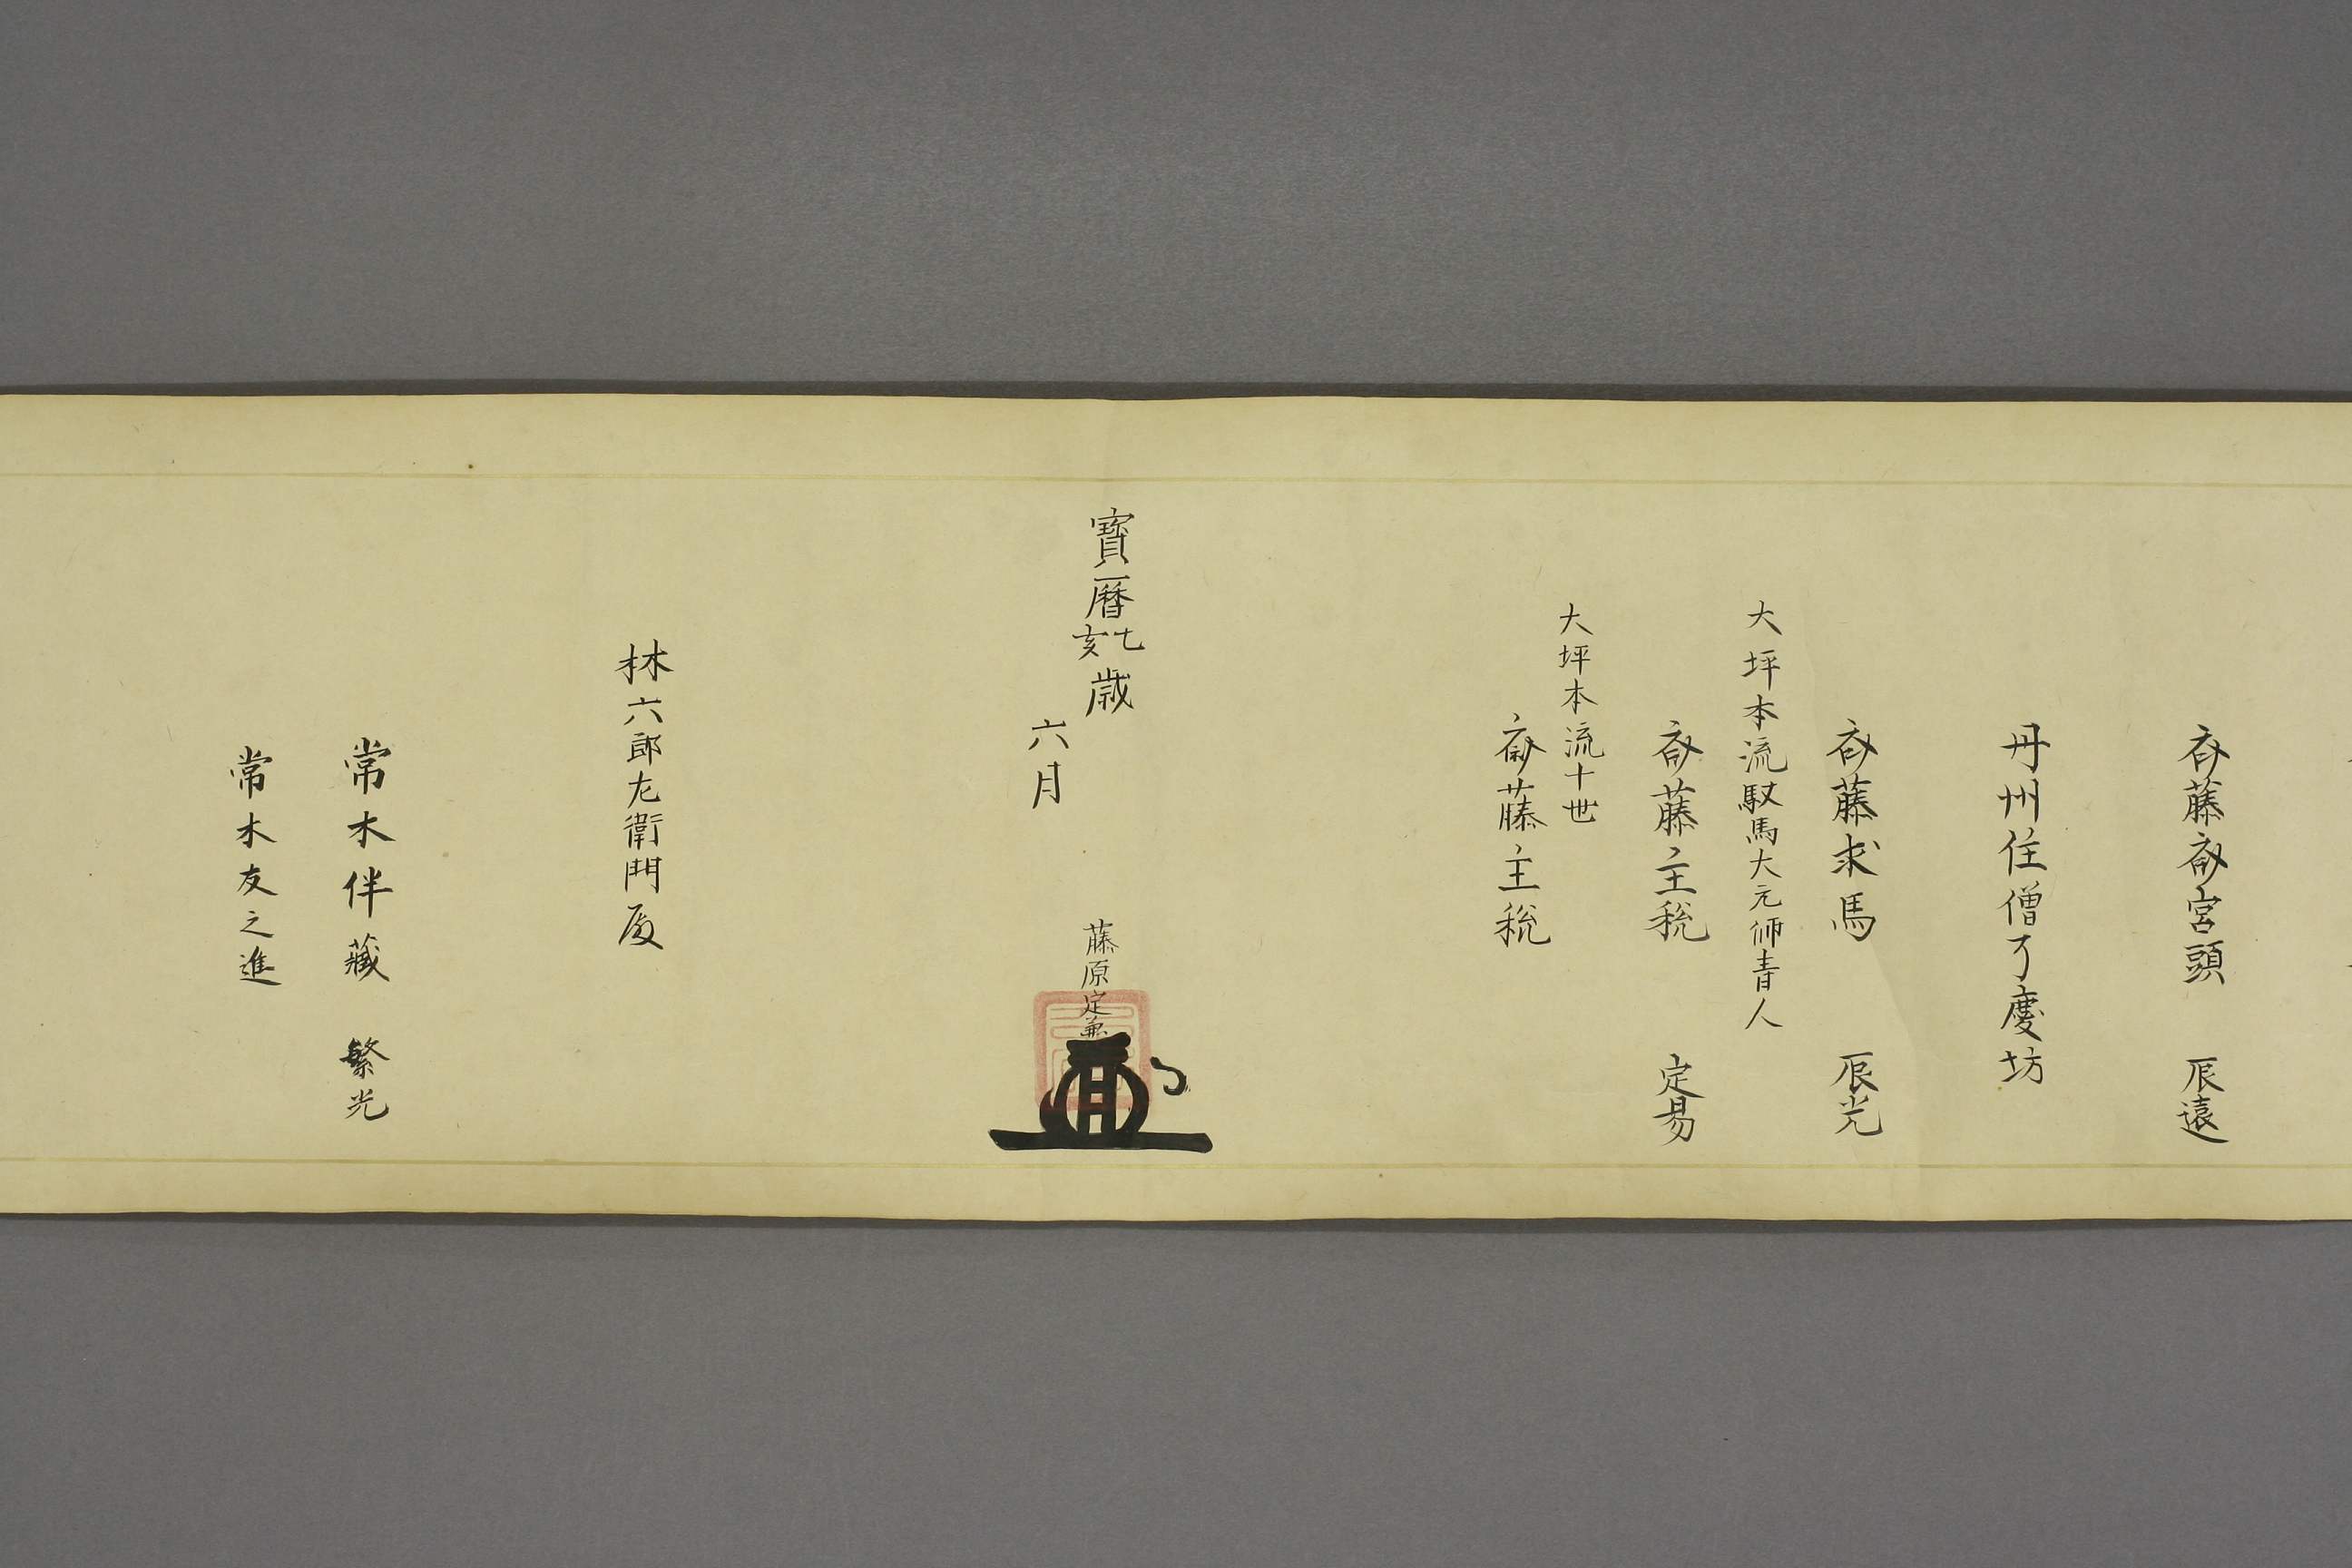 斎藤斎宮頭　辰遠
丹州住僧了慶坊
斎藤求馬　辰光
大坪本流馭馬大元師青人
斎藤主税　定易
大坪本流十世
斎藤主税
寶暦乙亥歳
六月
藤原定兼
林六郎左衛門殿
常木伴藏　繁光
常木友之進